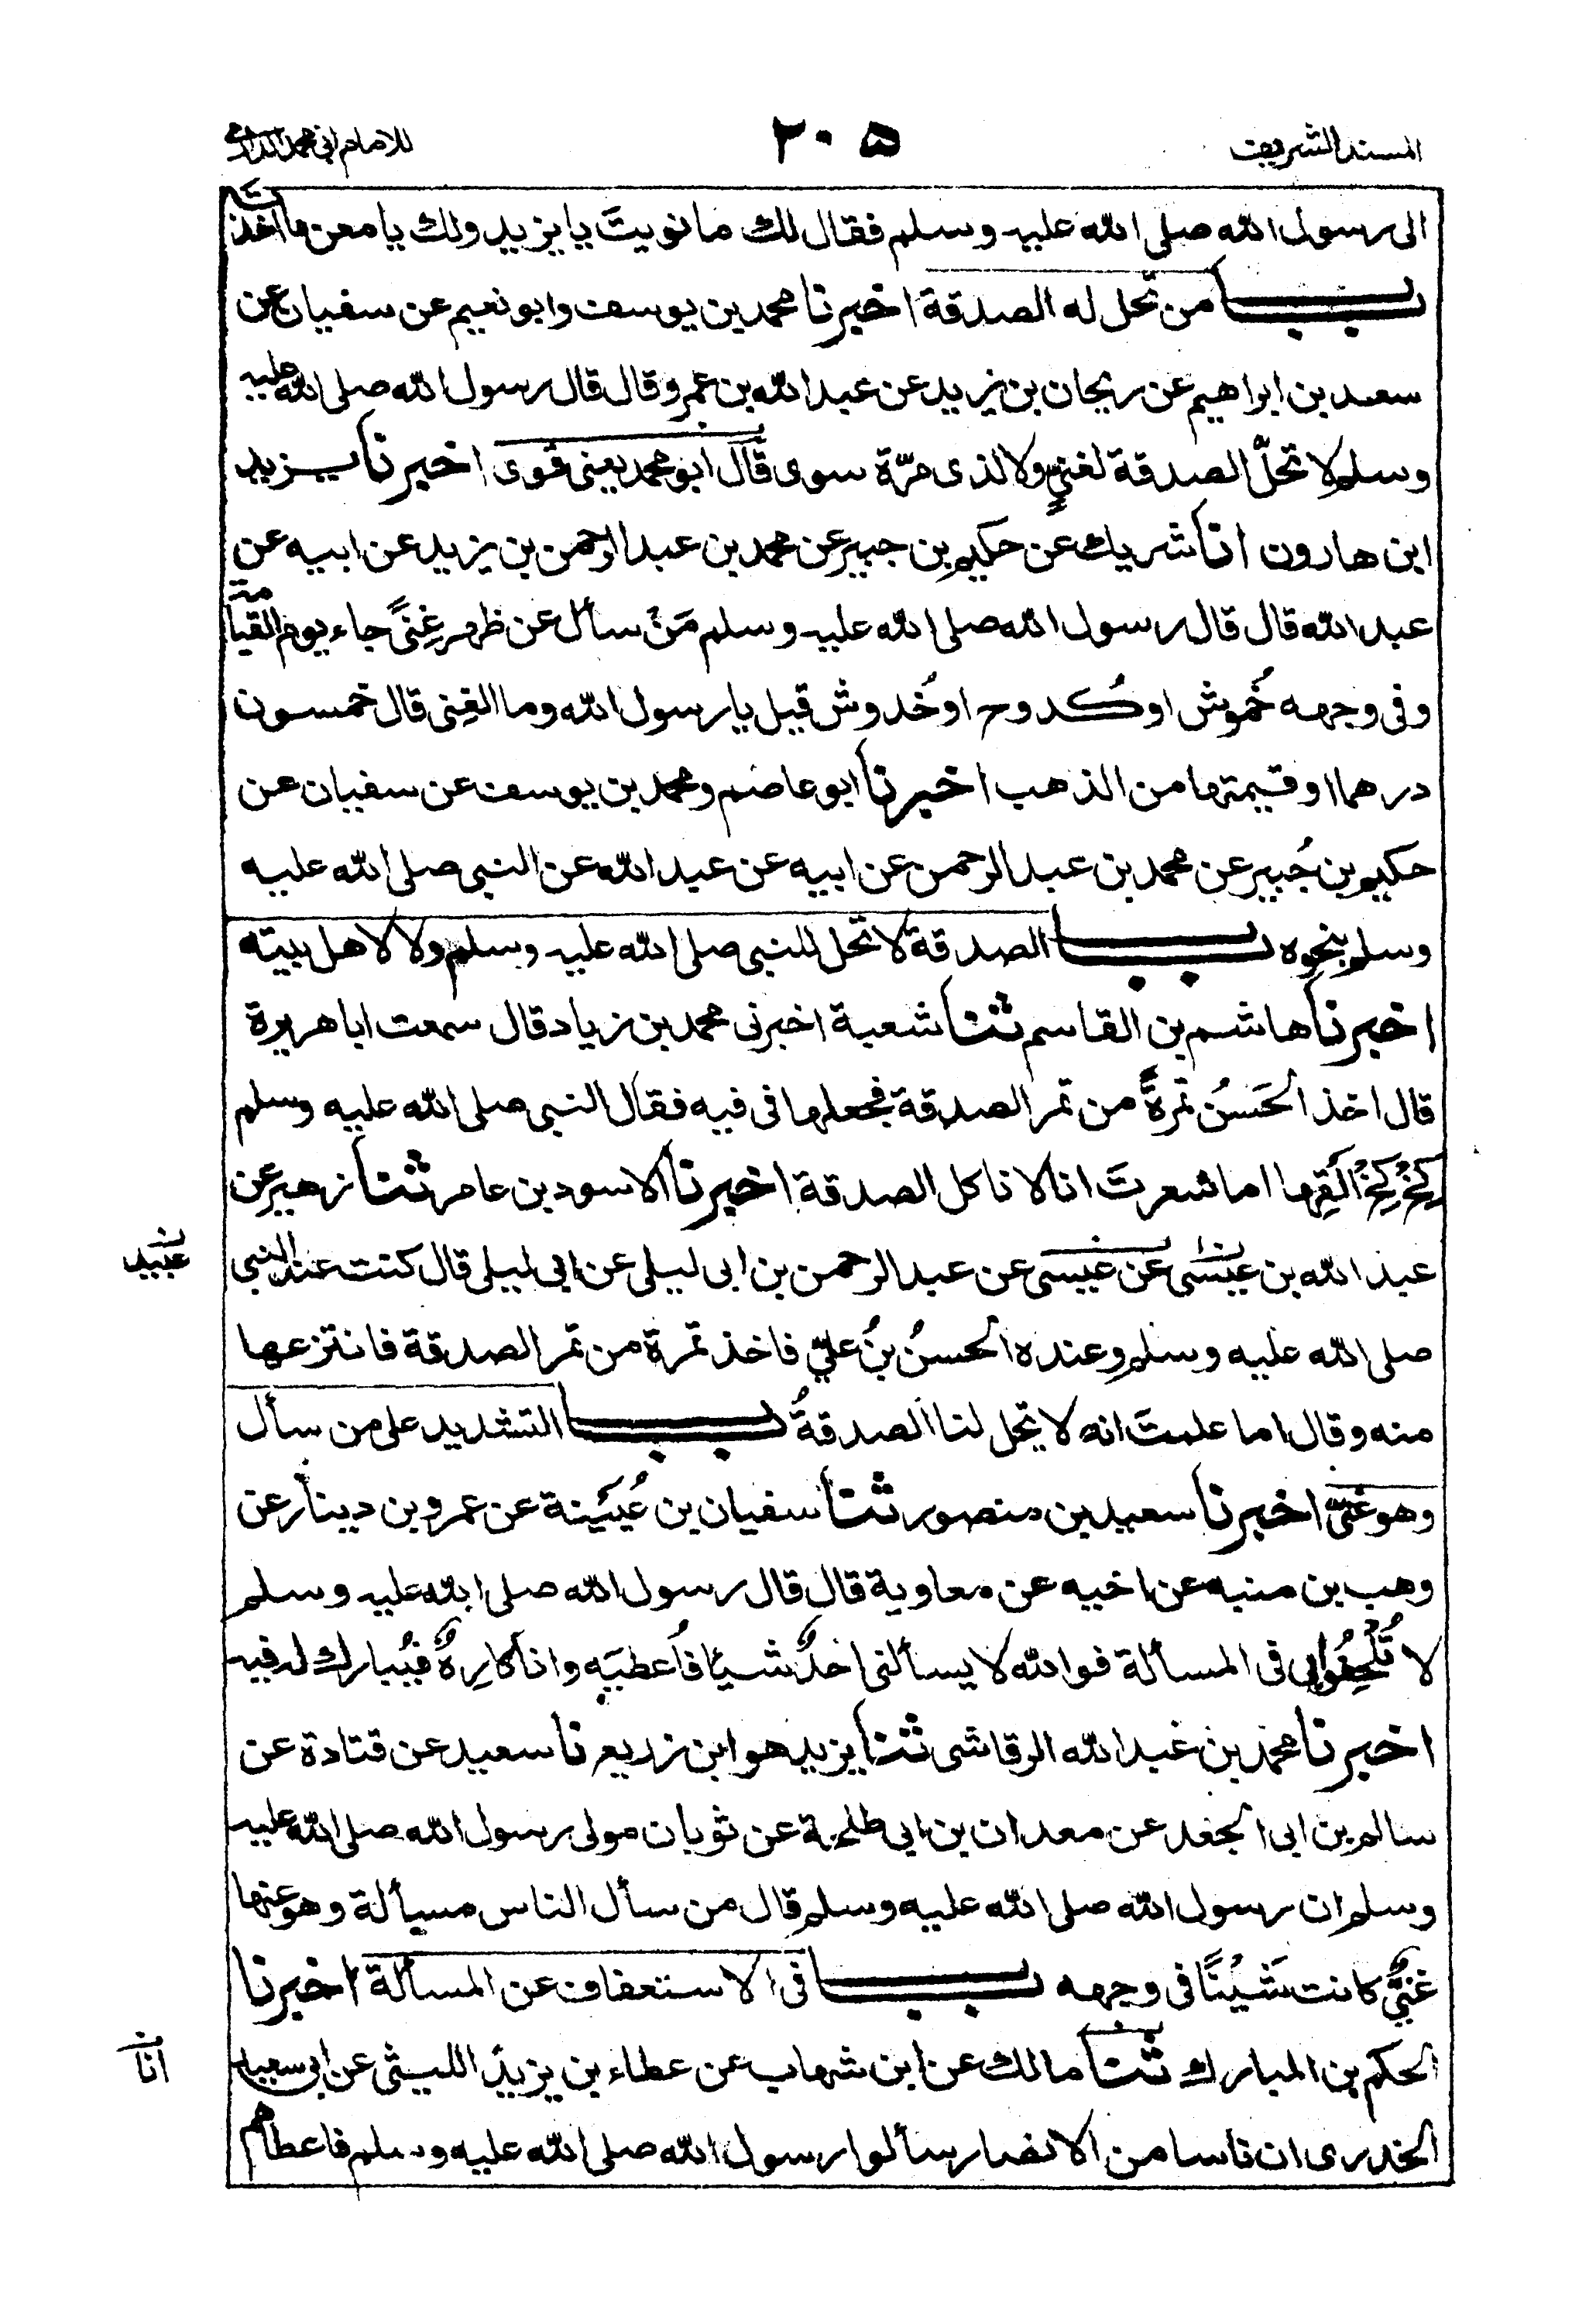 المسند الشريف ٢٠٥ للامام ابى محمد الدارمى
الى رسول الله صلى الله عليه وسلم فقال لك ما نويتَ يا يزيد ولك يا معن ما اخذتَ
باب من تحل له الصدقة اخبرنا محمد بن يوسف وابو نعيم عن سفيان عن
سعد بن ابراهيم عن ريحان بن يزيد عن عبد الله بن عمرو قال قال رسول الله صلى الله عليه
وسلم لا تحلّ الصدقة لغنيٍّ ولا لذى مرّة سوى قال ابو محمد يعنى قوى اخبرنا يزيد
ابن هارون انا شريك عن حكيم بن جبير عن محمد بن عبد الرحمن بن يزيد عن ابيه عن
عبد الله قال قال رسول الله صلى الله عليه وسلم مَنْ سأل عن ظهر غِنًى جاء يوم القيامة
وفى وجهه خُموش او كُدوح او خُدوش قيل يا رسول الله وما الغِنى قال خمسون
درهما او قيمتها من الذهب اخبرنا ابو عاصم ومحمد بن يوسف عن سفيان عن
حكيم بن جُبير عن محمد بن عبد الرحمن عن ابيه عن عبد الله عن النبى صلى الله عليه
وسلم بنحوه باب الصدقة لا تحل للنبى صلى الله عليه وسلم ولا لاهل بيته
اخبرنا هاشم بن القاسم ثنا شعبة اخبرنى محمد بن زياد قال سمعت ابا هريرة
قال اخذ الحَسنُ تمرةً من تمر الصدقة فجعلها فى فيه فقال النبى صلى الله عليه وسلم
كِخْ كِخْ اَلقِها اما شعرتَ انا لا ناكل الصدقة اخبرنا الاسود بن عامر ثنا زهير عن
عبد الله بن عيسى عن عيسى عن عبد الرحمن بن ابى ليلى عن ابى ليلى قال كنت عند النبى
عبيد
صلى الله عليه وسلم وعنده الحسنُ بنُ علىّ فاخذ تمرة من تمر الصدقة فانتزعها
منه وقال اما علمتَ انه لا تحل لنا الصدقةُ باب التشديد على من سأل
وهو غنىّ اخبرنا سعيد بن منصور ثنا سفيان بن عُيَيْنة عن عمرو بن دينار عن
وهب بن منبه عن اخيه عن معاوية قال قال رسول الله صلى الله عليه وسلم
لا تُلْحِفُوا بى فى المسألة فوالله لا يسألنى احدٌ شيئا فاُعطيَه وانا كارِهٌ فيُبارك له فيه
اخبرنا محمد بن عبد الله الرقاشى ثنا يزيد هو ابن زريع نا سعيد عن قتادة عن
سالم بن ابى الجعد عن معدان بن ابى طلحة عن ثوبان مولى رسول الله صلى الله عليه
وسلم ان رسول الله صلى الله عليه وسلم قال من سأل الناس مسألة وهو عنها
غنىٌّ كانت شَيْنًا فى وجهه باب فى الاستعفاف عن المسألة اخبرنا
الحكم بن المبارك ثنا مالك عن ابن شهاب عن عطاء بن يزيد الليثى عن ابى سعيد
انا
الخدرى ان ناسا من الانصار سألوا رسول الله صلى الله عليه وسلم فاعطاهم